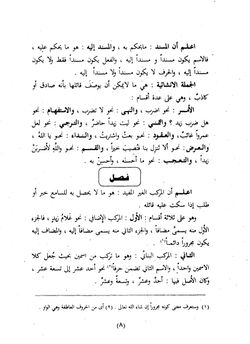 اعلم أن المسند : مايحكم به ، والمسند إليه : هو ما يحكم عليه ،
فالاسم يكون مسنداً و مسنداً إليه ، والفعل يكون مسنداً فقط ولا يكون
مسنداً إليه ، والحرف لا يكون مسنداً ولا مسنداً إليه .
الجملة الانشائية : هي ما لايمكن أن يوصف قائلها بأنه صادق أو
كاذب ، وهي على عدة أقسام :
الأمر : نحو اضرب ، والنهي : نحو لا تضرب ، والاستفهام : نحو
هل ضرب زيد ؟ والتمني : نحو ليت زيداً حاضرٌ ، والترجي : نحو لعل
عمرواً غائبٌ، والعقود : نحو بعتُ واشتريتُ ، والنداء : نحو يا اللهُ ،
والعرض: نحو ألا تنزل بنا فتُصيبَ خيراً ، والقسم : نحو واللهِ لأضربنّ
زيداً ، والتعجب : نحو ما أحسنَه ، وأحسِنْ به .
فصل
اعلم أن المركب الغير المفيد : هو ما لا يحصل به للسامع خبر أو
طلب إذا سكت عليه قائله .
وهو على ثلاثة أقسام : الأول : المركب الإضافي : نحو غلامُ زيدٍ ، فالجزء
الأوّل منه يسمى مضافاً ، والجزء الثاني منه يسمى مضافاً إليه ، والمضاف إليه
يكون مجروراً دائماً(١) .
الثاني : المركب البنائي : وهو ما تركب من اسمين بحيث جُعل كلا
الاسمين واحداً ، والاسم الثاني تضمن حرفاً(٢) نحو أحدَ عشرَ إلى تسعةَ عشرَ ،
وكان الأصل فيها : أحدٌ وعشرٌ ، وتسعةٌ وعشرٌ .
(١) وستعرف معنى كونه مجروراً إن شاء الله تعالى . (٢) أى من الحروف العاطفة وهي الواو .
(٨)